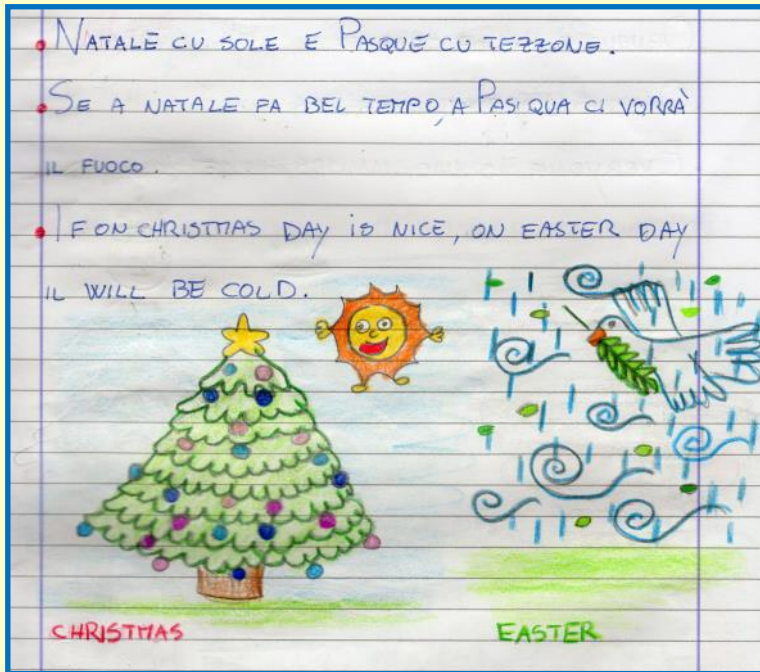 • NATALE CU SOLE E PASQUE CU TEZZONE.
• SE A NATALE FA BEL TEMPO, A PASQUA CI VORRÀ
IL FUOCO.
• IF ON CHRISTMAS DAY IS NICE, ON EASTER DAY
IL WILL BE COLD.
CHRISTMAS
EASTER